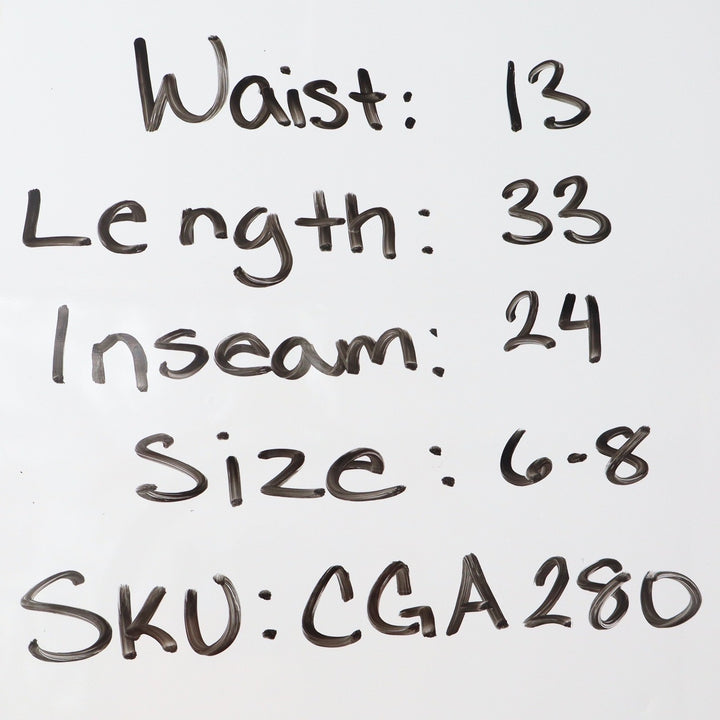 Waist: 13
Length: 33
Inseam: 24
Size: 6-8
SKU: CGA280